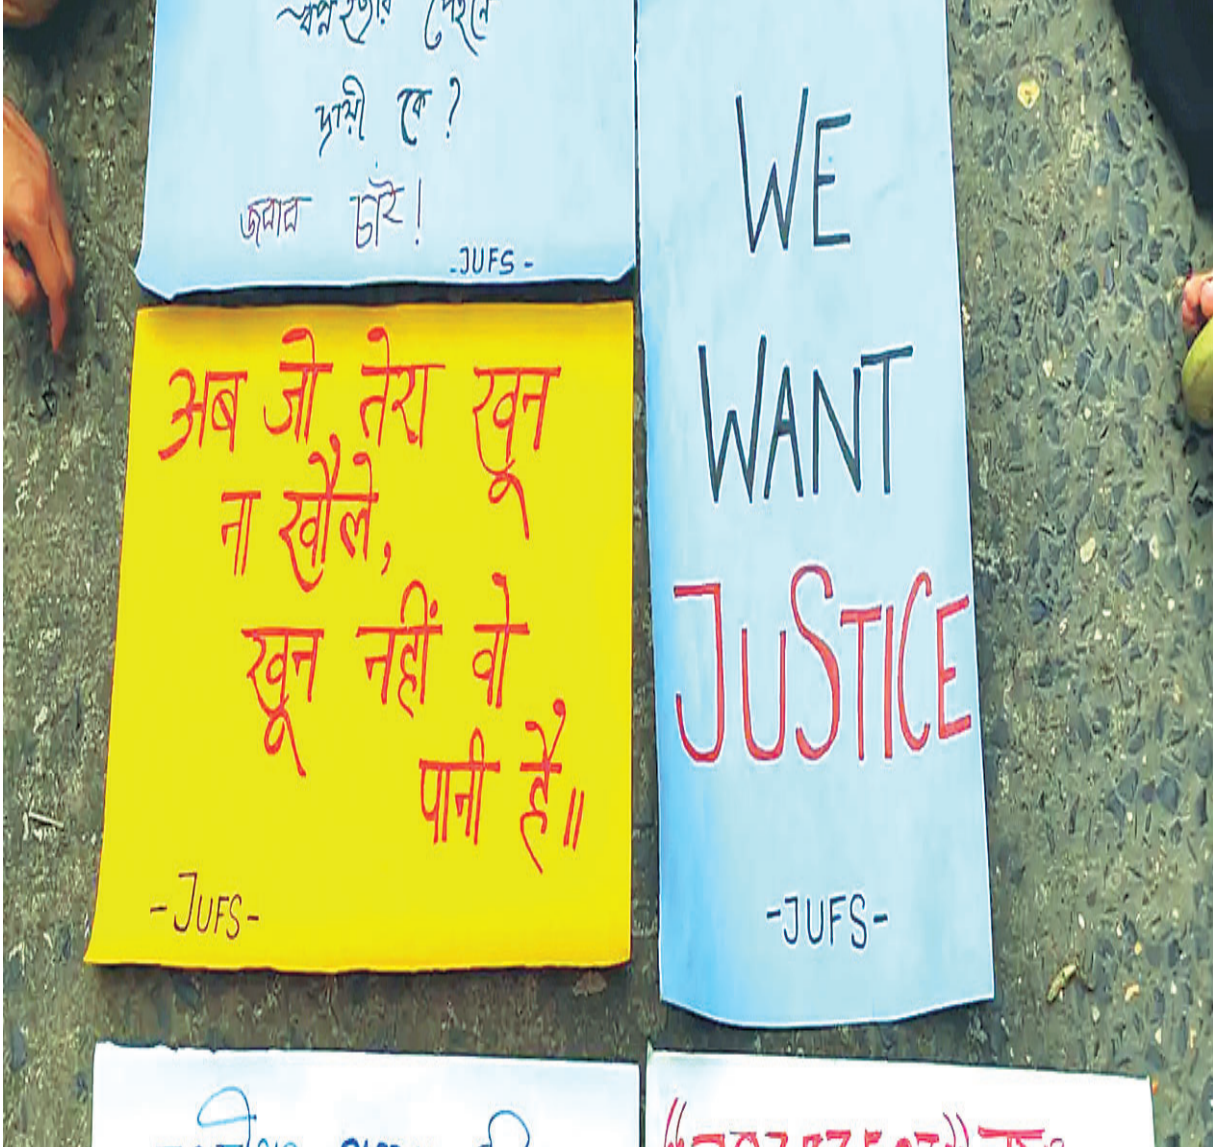 দায়ী কে?
জবাব চাই!
-JUFS-
अब जो तेरा खून
ना खौले,
खून नहीं वो
पानी है॥
-JUFS-
WE
WANT
JUSTICE
-JUFS-